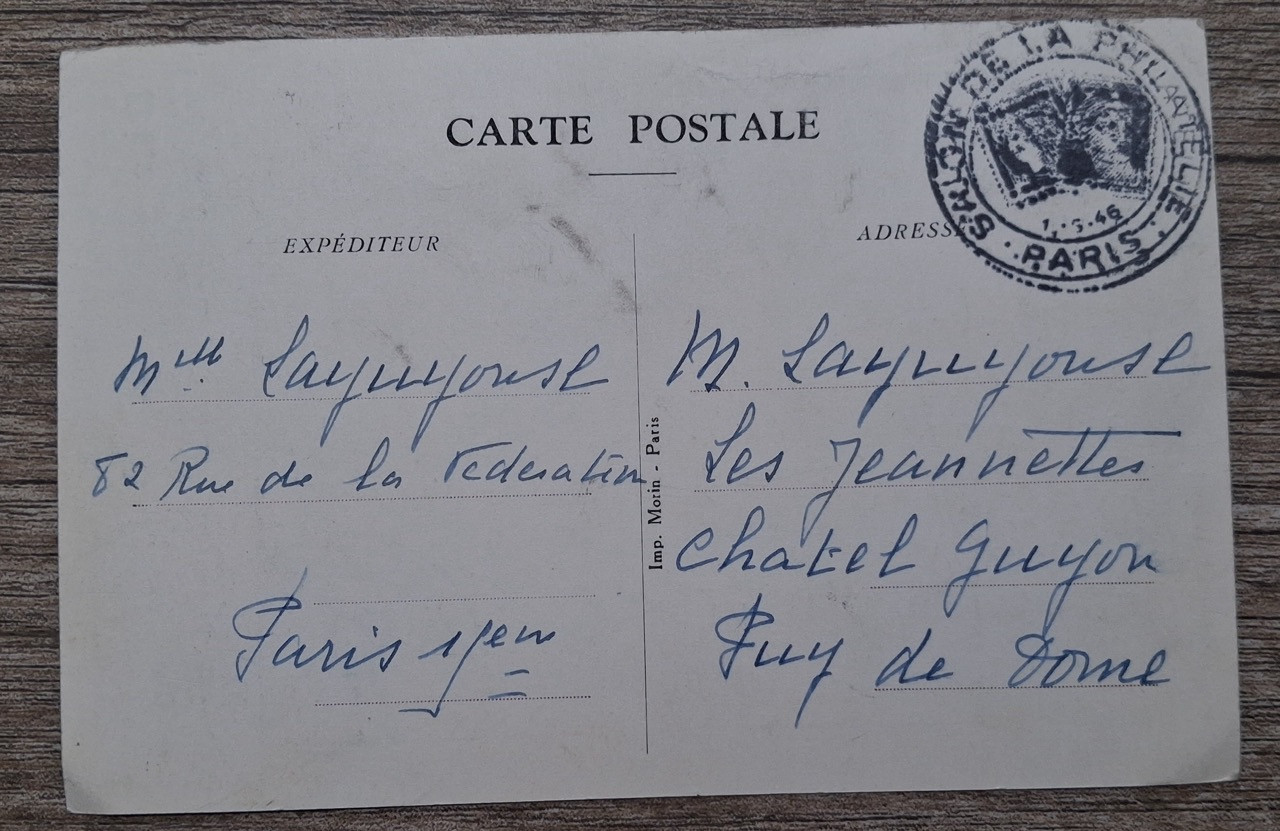 CARTE POSTALE
SALON DE LA PHILATELIE
PARIS
EXPÉDITEUR
Mlle
82 Rue de la Federation
Paris 15em
Imp. Morin - Paris
ADRESSE
M.
Les Jeannettes
Chatel Guyon
Puy de Dome